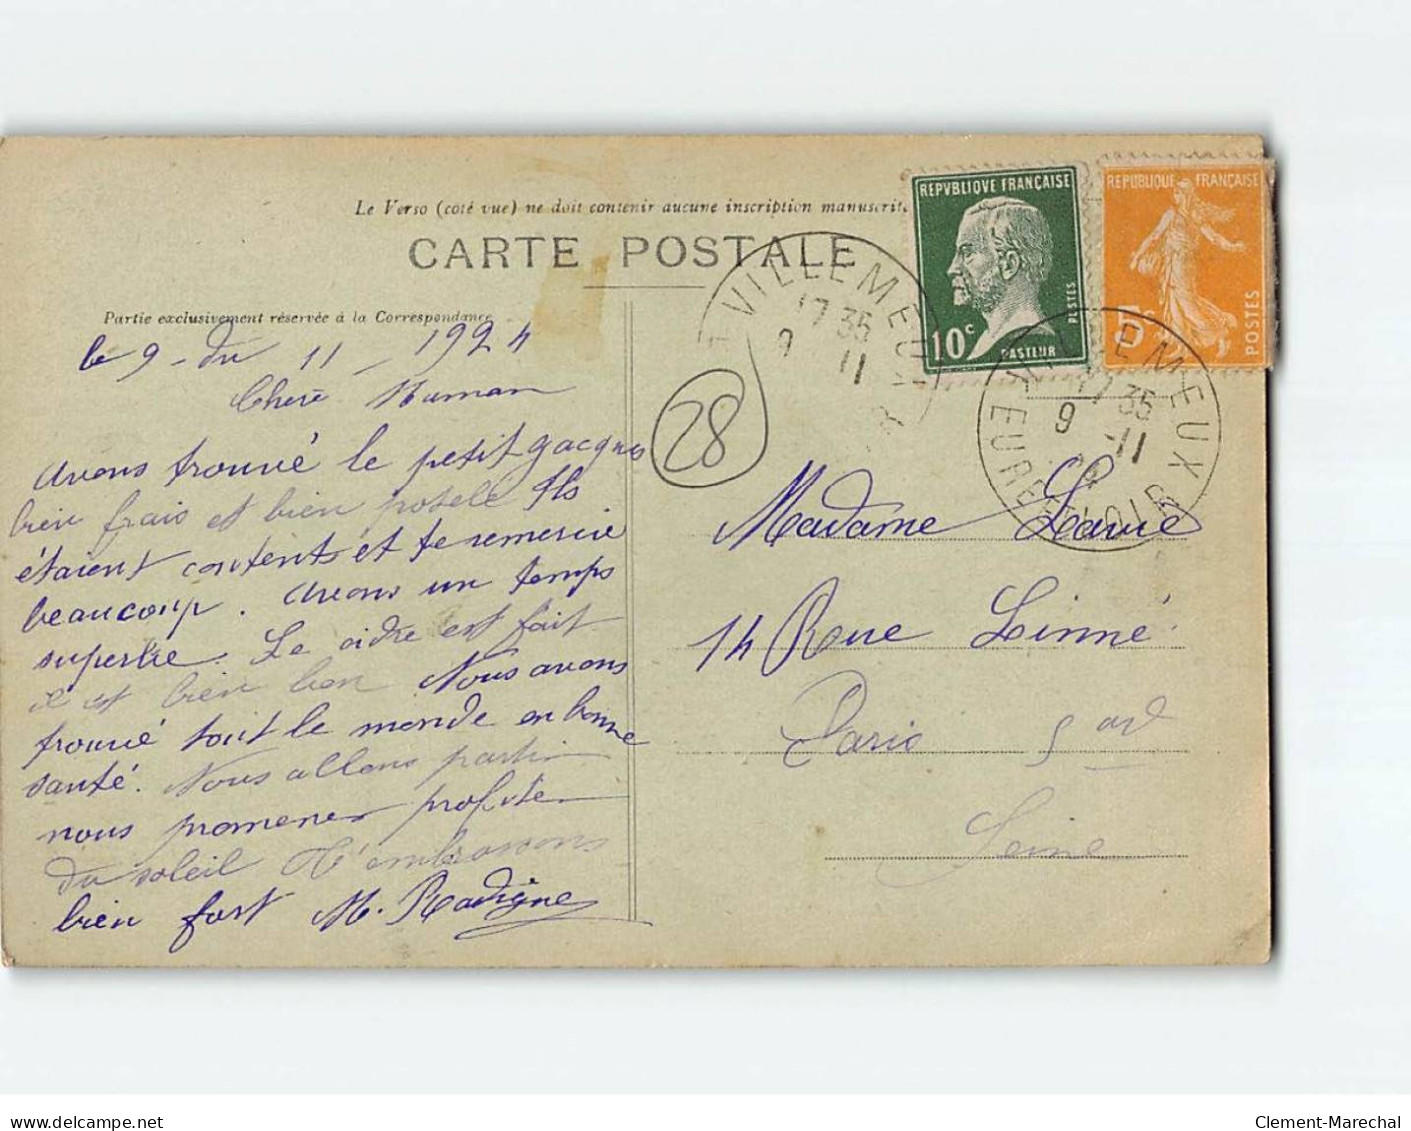 Le Verso (coté vue) ne doit contenir aucune inscription manuscrite
CARTE POSTALE
Partie exclusivement réservée à la Correspondance
le 9 - du 11 - 1924
Chère Maman
avons trouvé le petit
bien frais et bien Ils
étaient contents et te remercie
beaucoup. Avons un temps
superbe. Le cidre est fait
il est bien bon Nous avons
trouvé tout le monde en bonne
santé. Nous allons partir
nous promener profiter
du soleil T'embrassons
bien fort M. Radigne
28
REPVBLIQVE FRANÇAISE
10c
PASTEUR
POSTES
REPUBLIQUE FRANÇAISE
5c
POSTES
VILLEMEUX
17 35
9 11
VILLEMEUX
17 35
9 -11
EURE-ET-LOIR
Madame
14 Rue Linné
Paris 5 ard
Seine
www.delcampe.net
Clement-Marechal